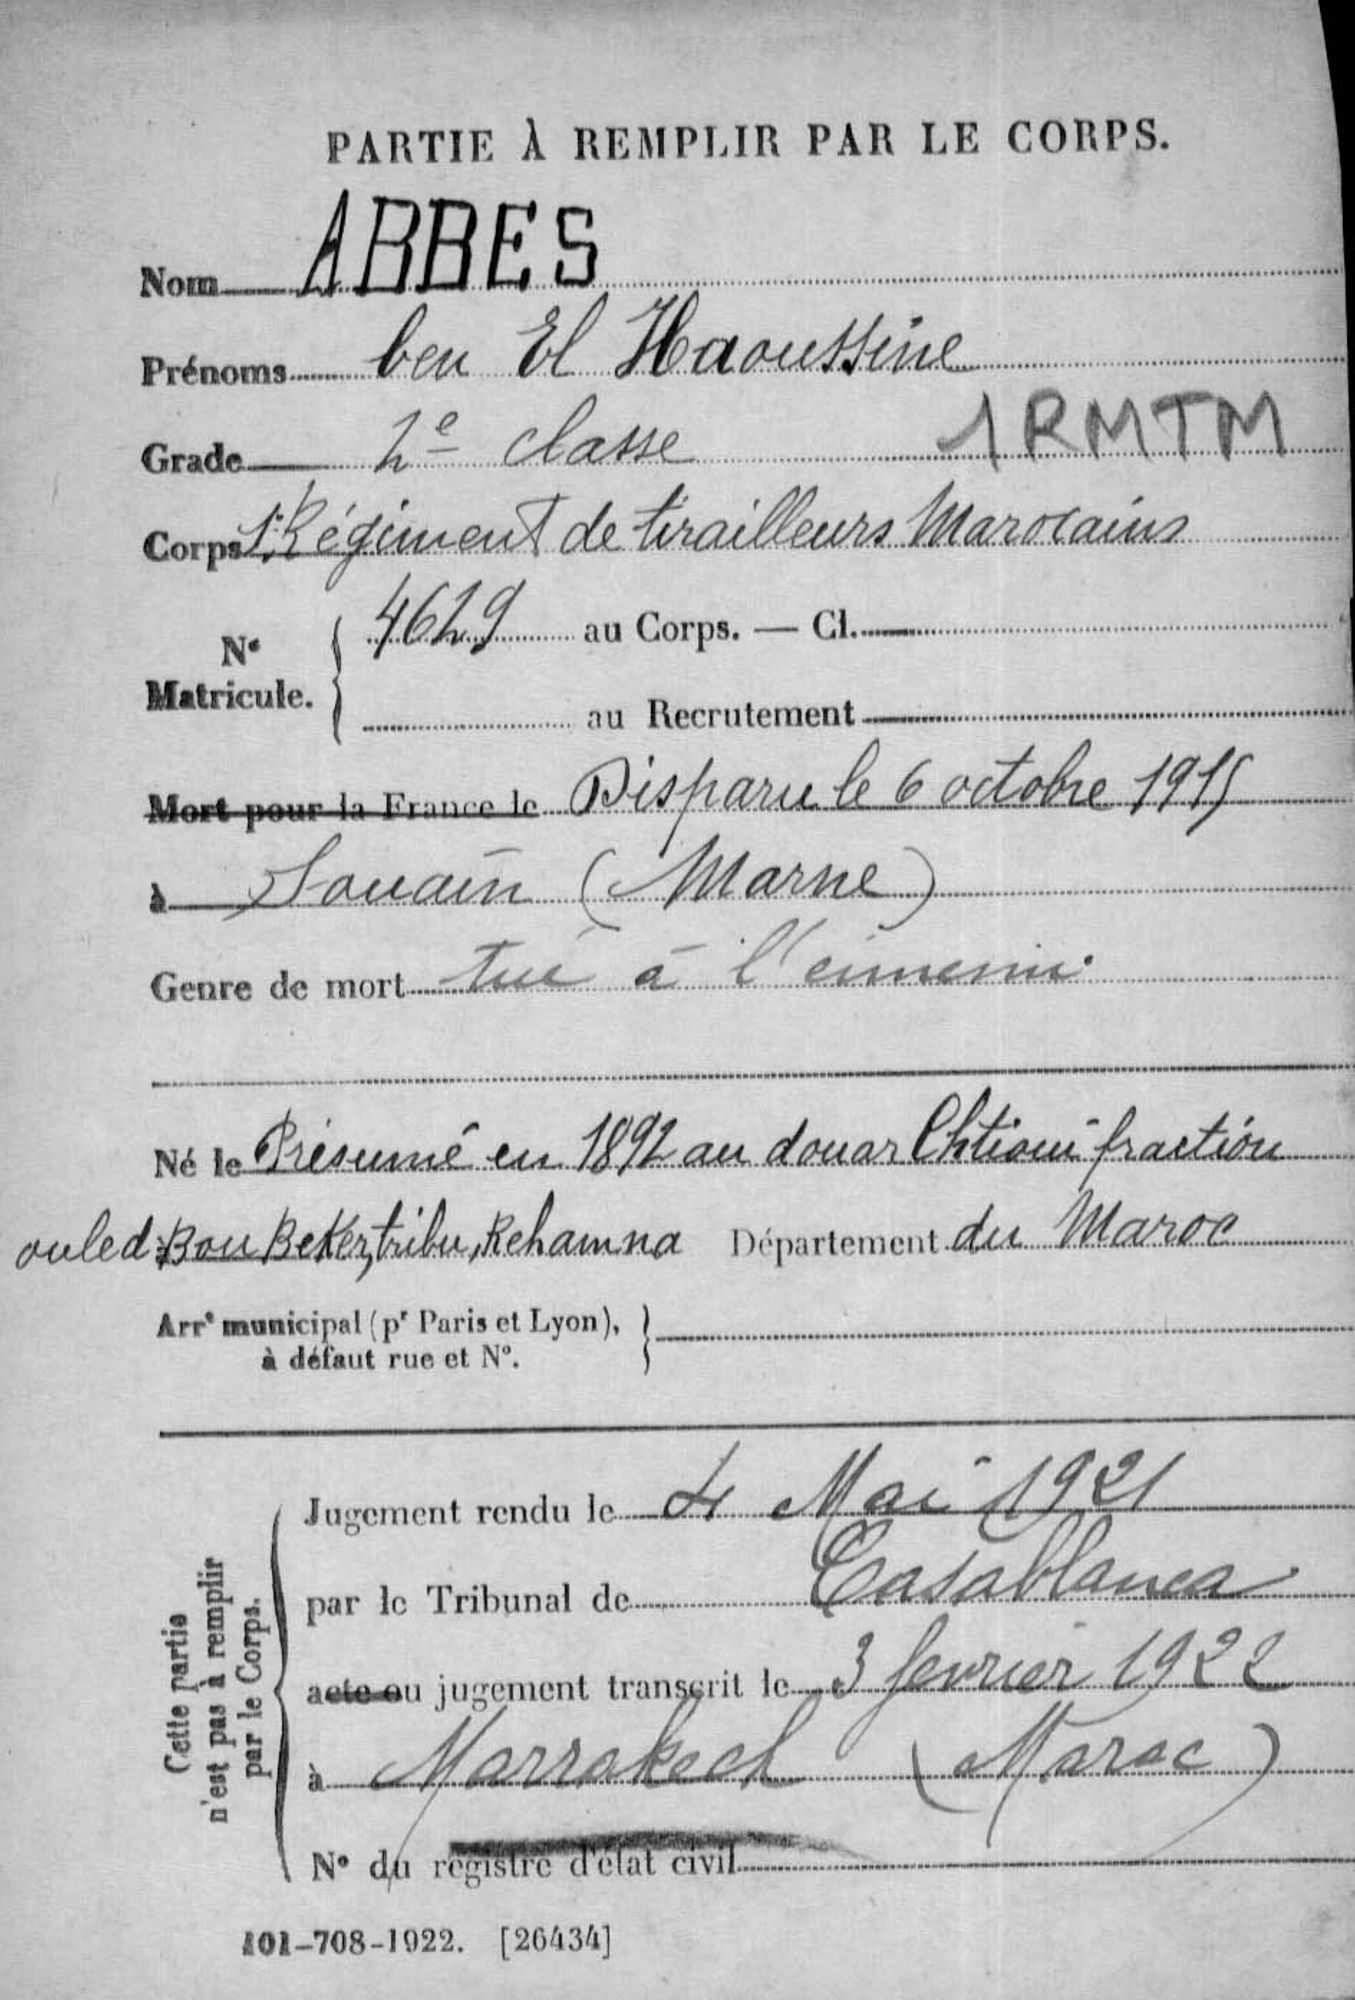 PARTIE À REMPLIR PAR LE CORPS.
Nom ABBES
Prénoms ben El Haoussine
Grade 2e classe 1RMTM
Corps 1r Régiment de tirailleurs Marocains
No Matricule. 4629 au Corps. — Cl.
au Recrutement
Mort pour la France le Disparu le 6 octobre 1915
à Souain (Marne)
Genre de mort tué à l'ennemi.
Né le Présumé en 1892 au douar Chtioui fraction
ouled Bou Beker, tribu, Rehamna Département du Maroc
Arrt municipal (pr Paris et Lyon),
à défaut rue et No.
Cette partie
n'est pas à remplir
par le Corps.
Jugement rendu le 4 Mai 1921
par le Tribunal de Casablanca
acte ou jugement transcrit le 3 février 1922
à Marrakech (Maroc)
No du registre d'état civil
101-708-1922. [26434]